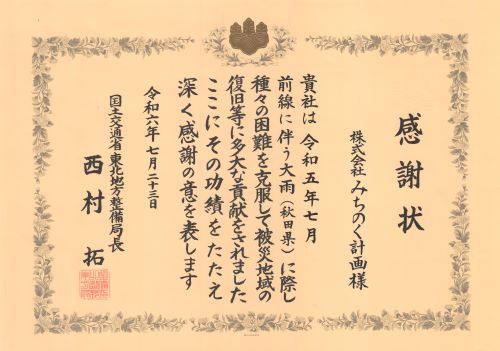 感謝状
株式会社 みちのく計画様
貴社は 令和五年七月
前線に伴う大雨(秋田県)に際し
種々の困難を克服して被災地域の
復旧等に多大な貢献をされました
ここにその功績をたたえ
深く感謝の意を表します
令和六年 七月 二十三日
国土交通省 東北地方整備局長
西村 拓